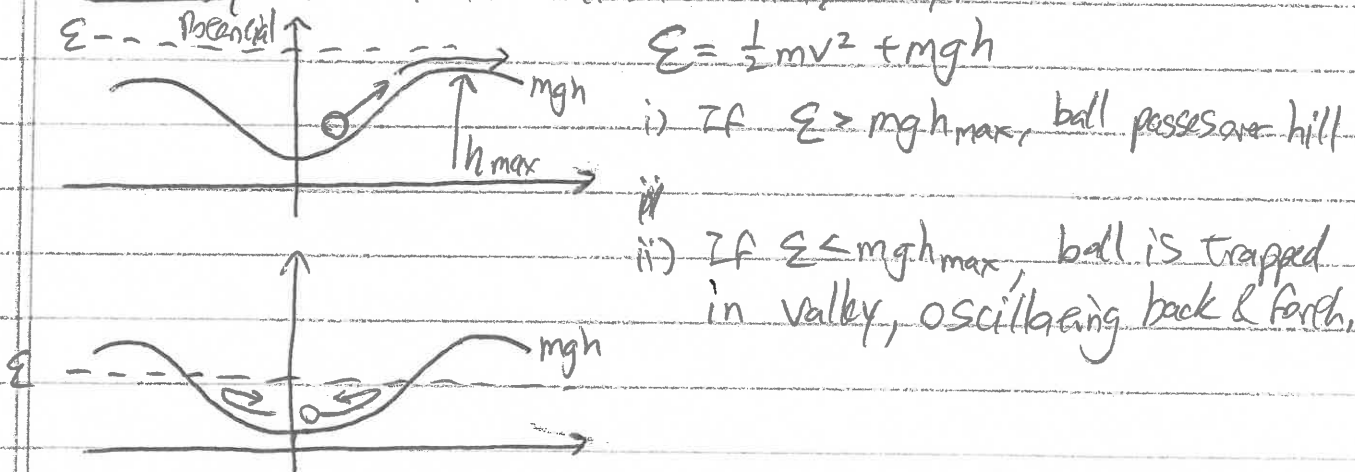 ℰ
Potential
mgh
hmax
ℰ = ½mv² + mgh
i) If ℰ > mghmax, ball passes over hill
ii) If ℰ < mghmax, ball is trapped
in valley, oscillating back & forth.
ℰ
mgh